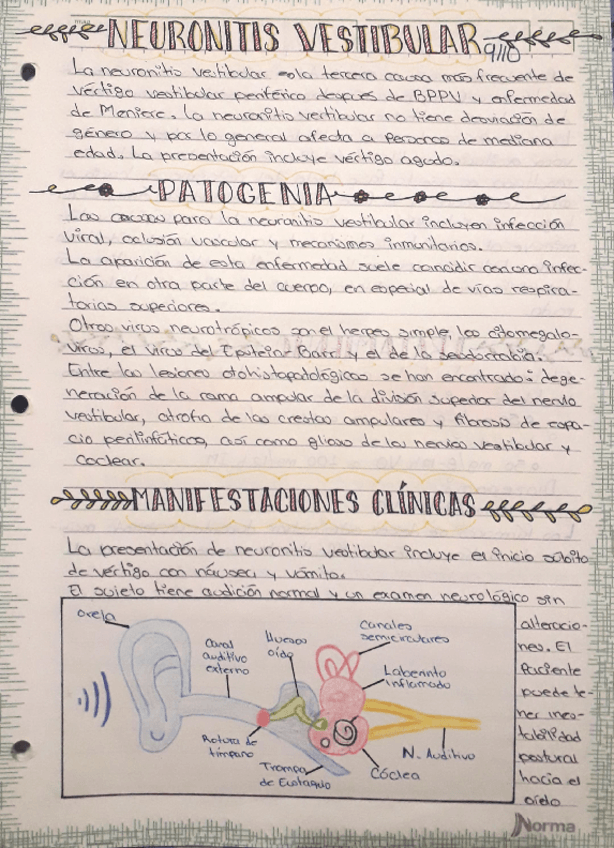 NEURONITIS VESTIBULAR
9/10
La neuronitis vestibular es la tercera causa mas frecuente de
vértigo vestibular periférico despues de BPPV y enfermedad
de Meniere. La neuronitis vestibular no tiene desviación de
género y por lo general afecta a personas de mediana
edad. La presentación incluye vértigo agudo.
PATOGENIA
Las causas para la neuronitis vestibular incluyen infección
viral, oclusión vascular y mecanismos inmunitarios.
La aparición de esta enfermedad suele coincidir con una infec-
ción en otra parte del cuerpo, en especial de vías respira-
torias superiores.
Otros virus neurotrópicos son el herpes simple, los citomegalo-
virus, el virus del Epstein-Barr y el de la seudorrabia.
Entre las lesiones otohistopatológicas se han encontrado: dege-
neración de la rama ampular de la división superior del nervio
vestibular, atrofia de las crestas ampulares y fibrosis de espa-
cio perilinfáticos, así como gliosis de los nervios vestibular y
coclear.
MANIFESTACIONES CLÍNICAS
La presentación de neuronitis vestibular incluye el inicio súbito
de vértigo con náusea y vómito.
El sujeto tiene audición normal y un examen neurológico sin
alteracio-
nes. El
Paciente
puede te-
ner ines-
tabilidad
postural
hacia el
oído
oreja
Canal
auditivo
externo
Huesos
oído
Canales
semicirculares
Laberinto
inflamado
Rotura de
tímpano
Trompa
de Eustaquio
Cóclea
N. Auditivo
Norma